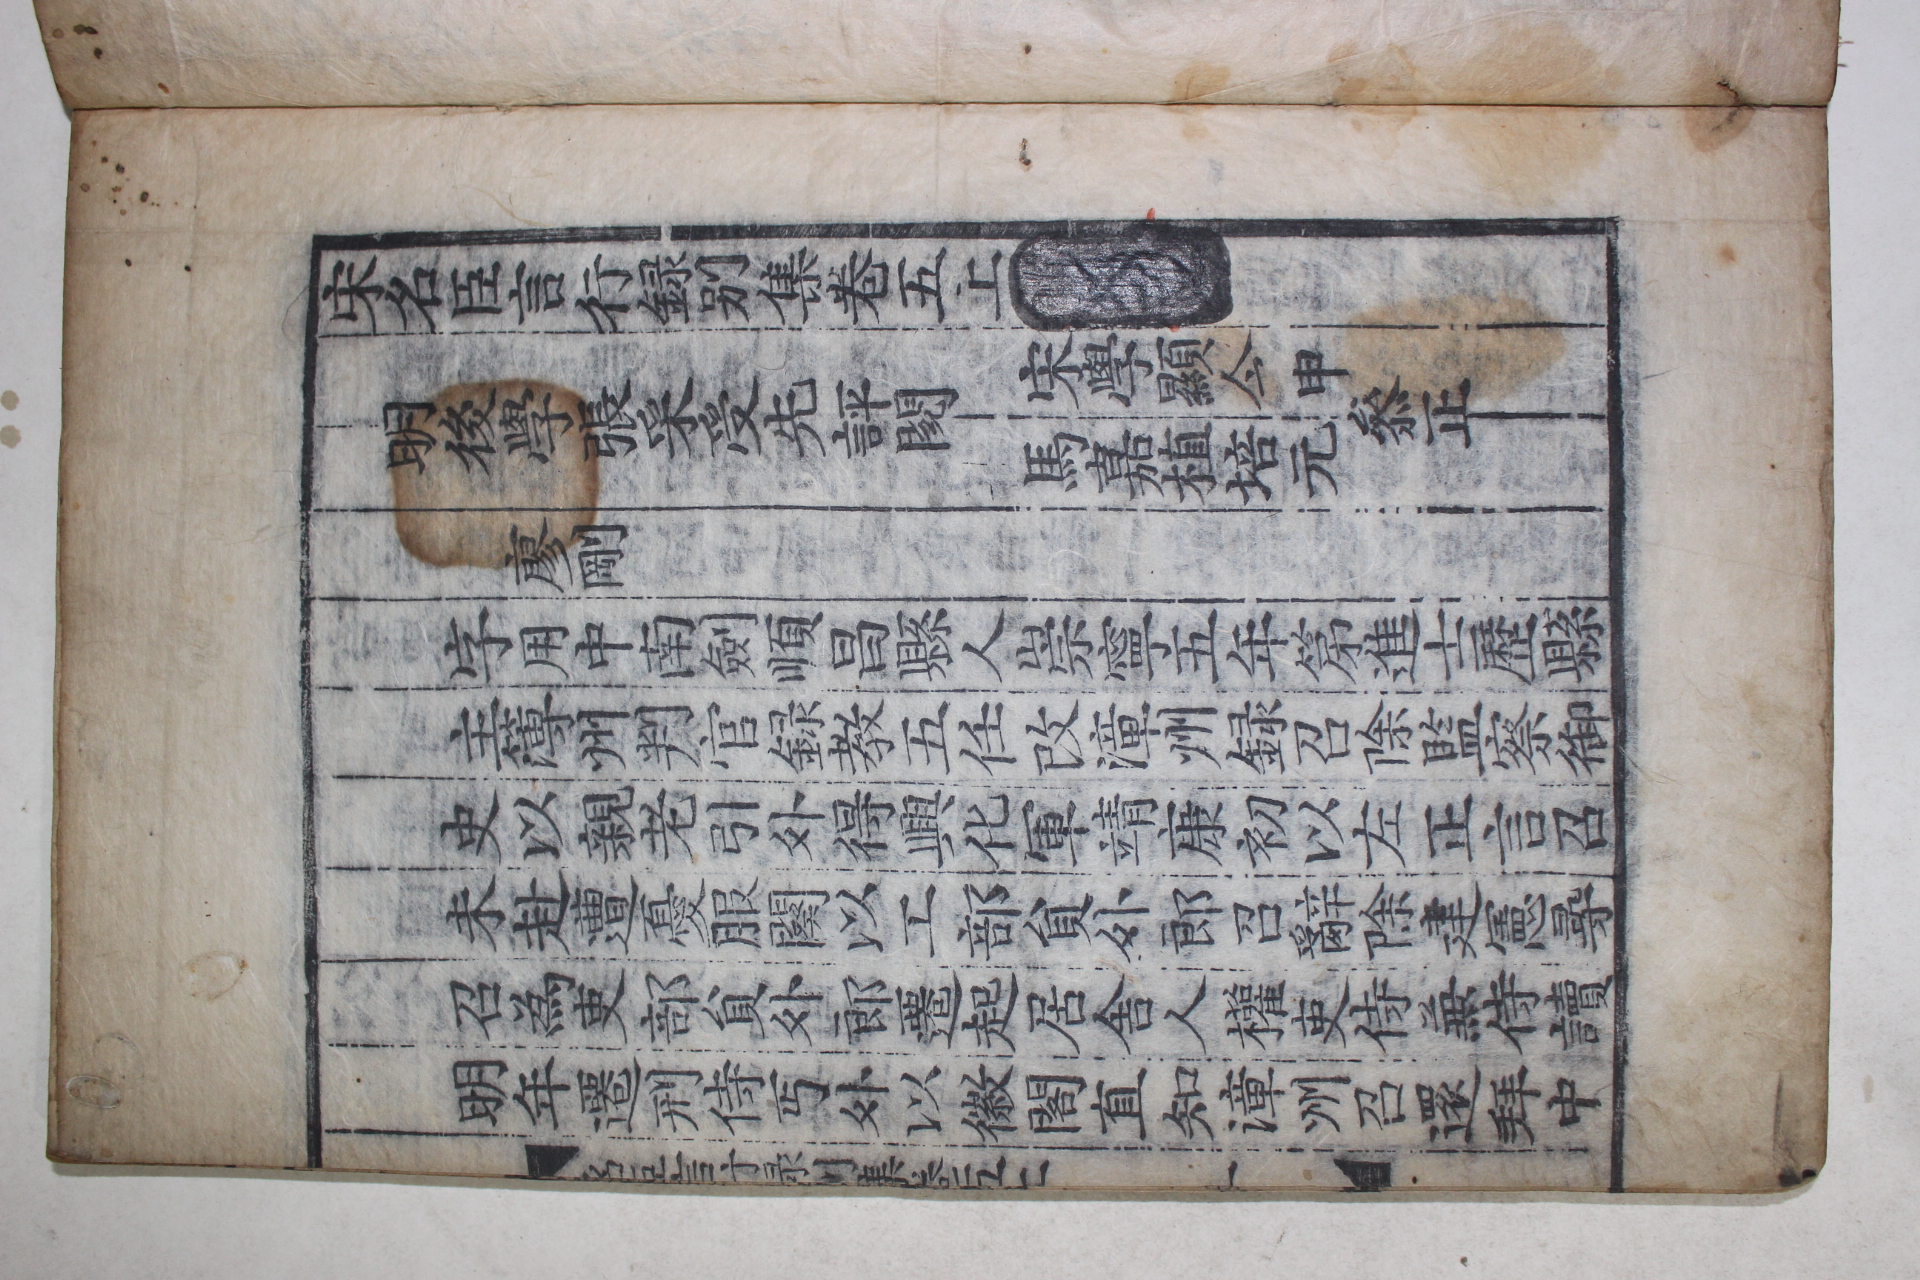 宋名臣言行録别集卷五上
明後學張采受先評閱
宋學顯令申
馬嘉植培元
叅正
廖剛
字用中南劍順昌縣人崇寧五年第進士歷縣
主簿州判官録教五任改漳州録召除監察御
史以親老引外得興化軍靖康初以左正言召
未赴遭憂服闋以工部貟外郎召辭除建憲尋
召為吏部貟外郎遷起居舍人權吏侍兼侍讀
明年遷刑侍丐外以徽閣直知漳州召還拜中
名臣言行録别集卷五上
一